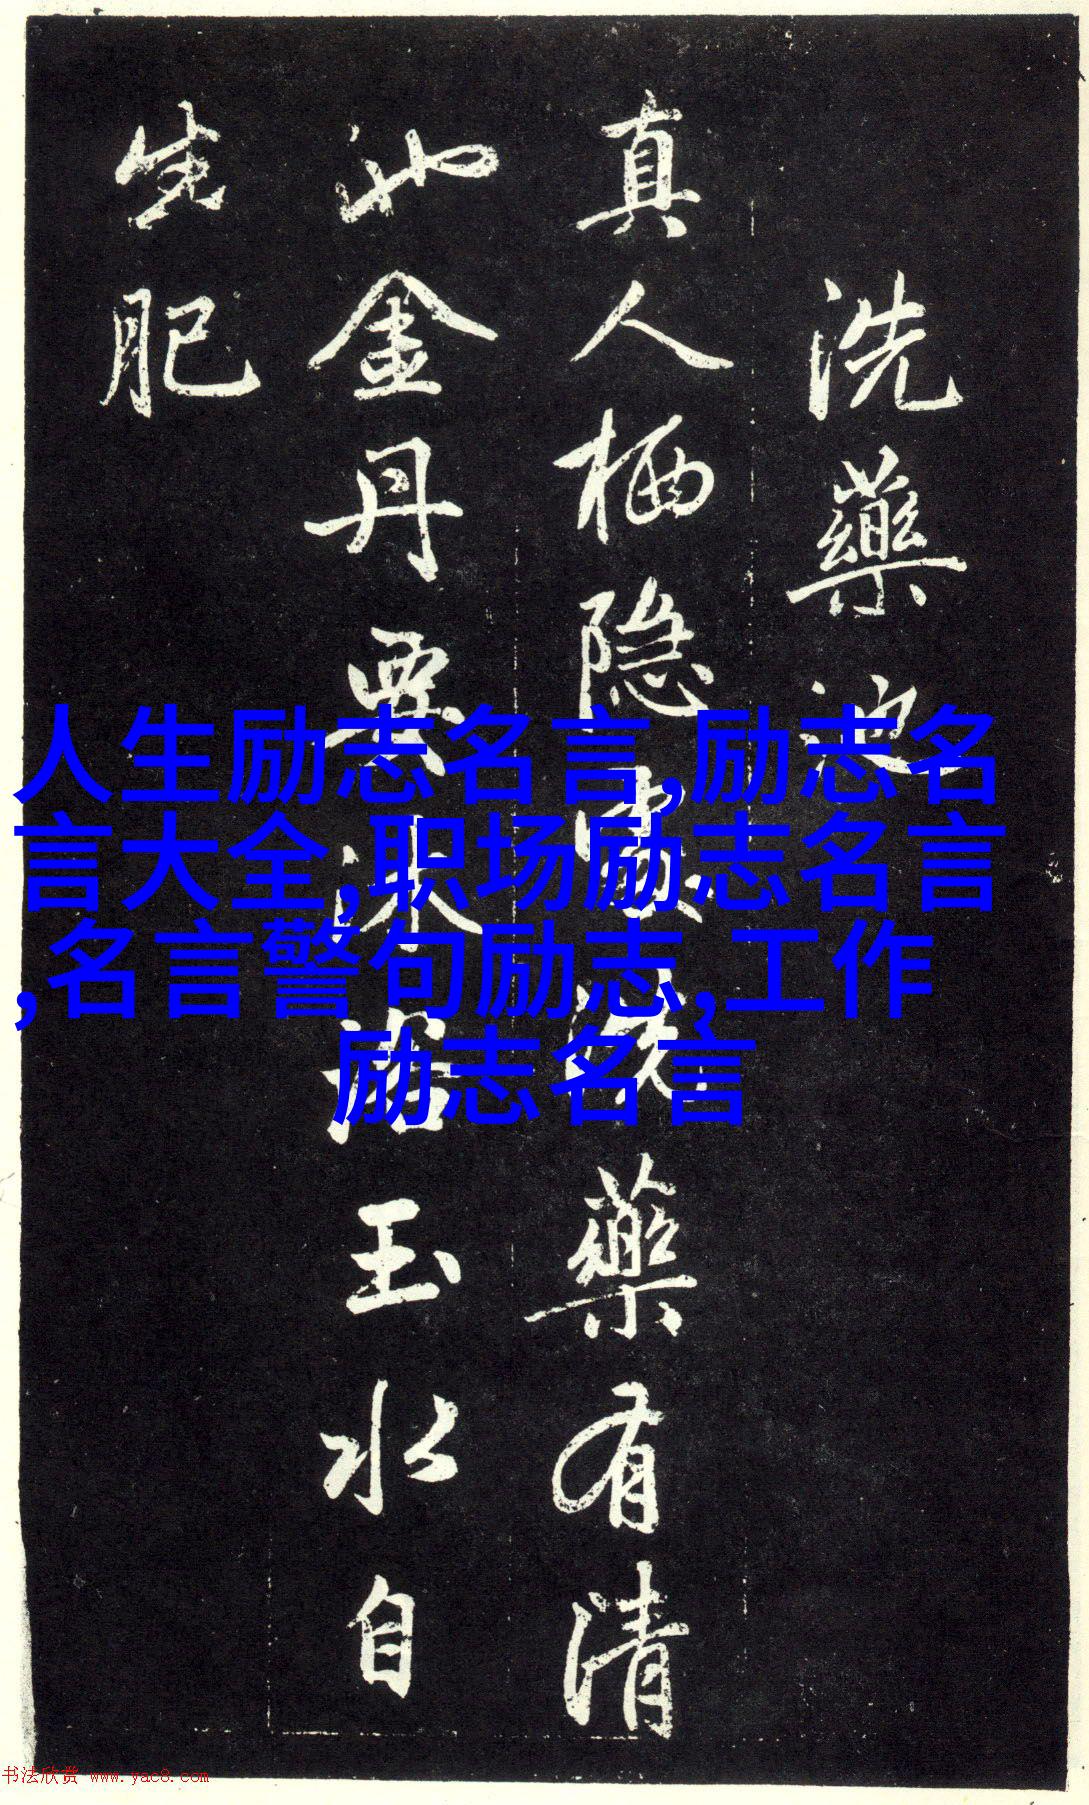 洗藥池
真人栖隐處洗藥有清
池金丹要沐浴玉水自
生肥
人生励志名言,励志名
言大全,职场励志名言
,名言警句励志,工作
励志名言
书法欣赏 www.yac8.com